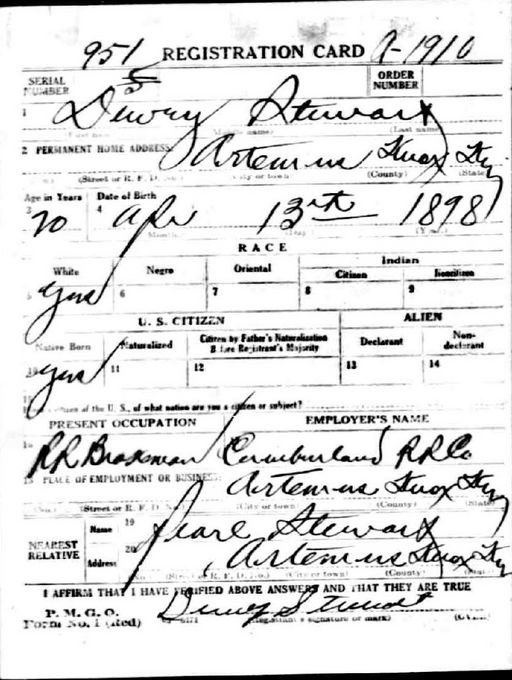 951 REGISTRATION CARD A-1910
SERIAL NUMBER ORDER NUMBER
1 Dewey Stewart
(Last name)
2 PERMANENT HOME ADDRESS: Artemus Knox Ky
(Street or R. F. D. No.) (City or town) (County) (State)
Age in Years Date of Birth
3 20 4 Apr 13th 1898
(Year)
RACE
White Negro Oriental Indian
Citizen Noncitizen
5 yes 6 7 8 9
U. S. CITIZEN ALIEN
Native Born Naturalized Citizen by Father's Naturalization Before Registrant's Majority Declarant Non-declarant
10 yes 11 12 13 14
of the U. S., of what nation are you a citizen or subject?
PRESENT OCCUPATION EMPLOYER'S NAME
RR Brakeman Cumberland RR Co
PLACE OF EMPLOYMENT OR BUSINESS: Artemus Knox Ky
(No.) (Street or R. F. D. No.) (City or town) (County) (State)
NEAREST RELATIVE Name 19 Pearl Stewart
Address 20 Artemus Knox Ky
(No.) (Street or R. F. D. No.) (City or town) (County) (State)
I AFFIRM THAT I HAVE VERIFIED ABOVE ANSWERS AND THAT THEY ARE TRUE
P. M. G. O.
Form No. 1 (Red) Dewey Stewart
(Registrant's signature or mark) (OVER)